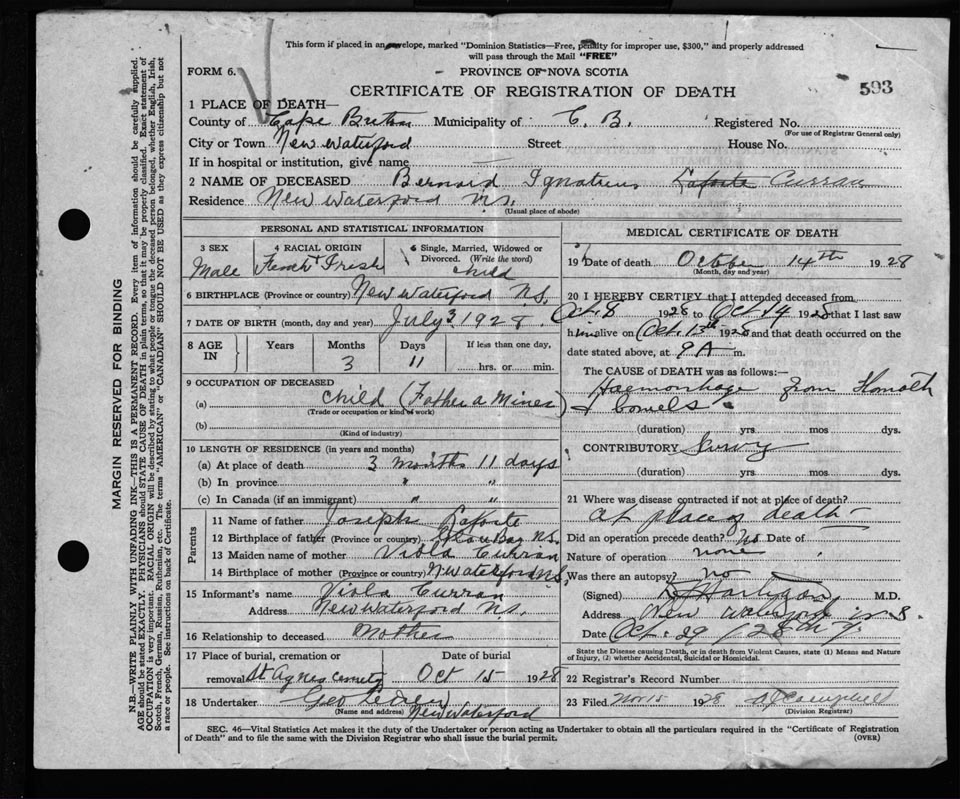 This form if placed in an envelope, marked "Dominion Statistics—Free, penalty for improper use, $300," and properly addressed
will pass through the Mail "FREE"
FORM 6.
PROVINCE OF NOVA SCOTIA
CERTIFICATE OF REGISTRATION OF DEATH
593
1 PLACE OF DEATH—
County of Cape Breton Municipality of C. B. Registered No.
(For use of Registrar General only)
City or Town New Waterford Street House No.
If in hospital or institution, give name
2 NAME OF DECEASED Bernard Ignatius Laforte Curran
Residence New Waterford N.S.
(Usual place of abode)
PERSONAL AND STATISTICAL INFORMATION
3 SEX 4 RACIAL ORIGIN 5 Single, Married, Widowed or
Divorced. (Write the word)
Male French + Irish child
6 BIRTHPLACE (Province or country) New Waterford N.S.
7 DATE OF BIRTH (month, day and year) July 3, 1928.
8 AGE IN Years Months Days If less than one day,
3 11 hrs. or min.
9 OCCUPATION OF DECEASED
(a) child (Father a Miner)
(Trade or occupation or kind of work)
(b)
(Kind of industry)
10 LENGTH OF RESIDENCE (in years and months)
(a) At place of death 3 months 11 days
(b) In province " "
(c) In Canada (if an immigrant) " "
Parents
11 Name of father Joseph Laforte
12 Birthplace of father (Province or country) Glace Bay N.S.
13 Maiden name of mother Viola Curran
14 Birthplace of mother (Province or country) New Waterford N.S.
15 Informant's name Viola Curran
Address New Waterford N.S.
16 Relationship to deceased Mother
17 Place of burial, cremation or Date of burial
removal St Agnes Cemetry Oct 15 1928
18 Undertaker Geo
(Name and address) New Waterford
MEDICAL CERTIFICATE OF DEATH
19 Date of death October 14th 1928
(Month, day and year)
20 I HEREBY CERTIFY that I attended deceased from
Oct. 8 1928 to Oct 14 1928 that I last saw
him alive on Oct. 13th 1928 and that death occurred on the
date stated above, at 9 A m.
The CAUSE of DEATH was as follows:—
Haemorrhage from stomach
& bowels
(duration) yrs. mos. dys.
CONTRIBUTORY Scurvy
(duration) yrs. mos. dys.
21 Where was disease contracted if not at place of death?
at place of death
Did an operation precede death? No Date of
Nature of operation none
Was there an autopsy? no
(Signed) Hartigan M.D.
Address New Waterford
Date Oct. 29
State the Disease causing Death, or in death from Violent Causes, state (1) Means and Nature
of Injury, (2) whether Accidental, Suicidal or Homicidal.
22 Registrar's Record Number
23 Filed Nov 15 1928 Campbell
(Division Registrar)
SEC. 46—Vital Statistics Act makes it the duty of the Undertaker or person acting as Undertaker to obtain all the particulars required in the "Certificate of Registration
of Death" and to file the same with the Division Registrar who shall issue the burial permit.
(OVER)
MARGIN RESERVED FOR BINDING
N.B.—WRITE PLAINLY WITH UNFADING INK—THIS IS A PERMANENT RECORD. Every item of information should be carefully supplied.
AGE should be stated EXACTLY. PHYSICIANS should STATE CAUSE OF DEATH in plain terms, so that it may be properly classified. Exact statement of
OCCUPATION is very important. RACIAL ORIGIN will be described by stating to what people or tongue the deceased person belonged, whether English, Irish,
Scotch, French, German, Russian, Ruthenian, etc. The terms "AMERICAN" or "CANADIAN" SHOULD NOT BE USED as they express citizenship but not
a race or people. See instructions on back of Certificate.